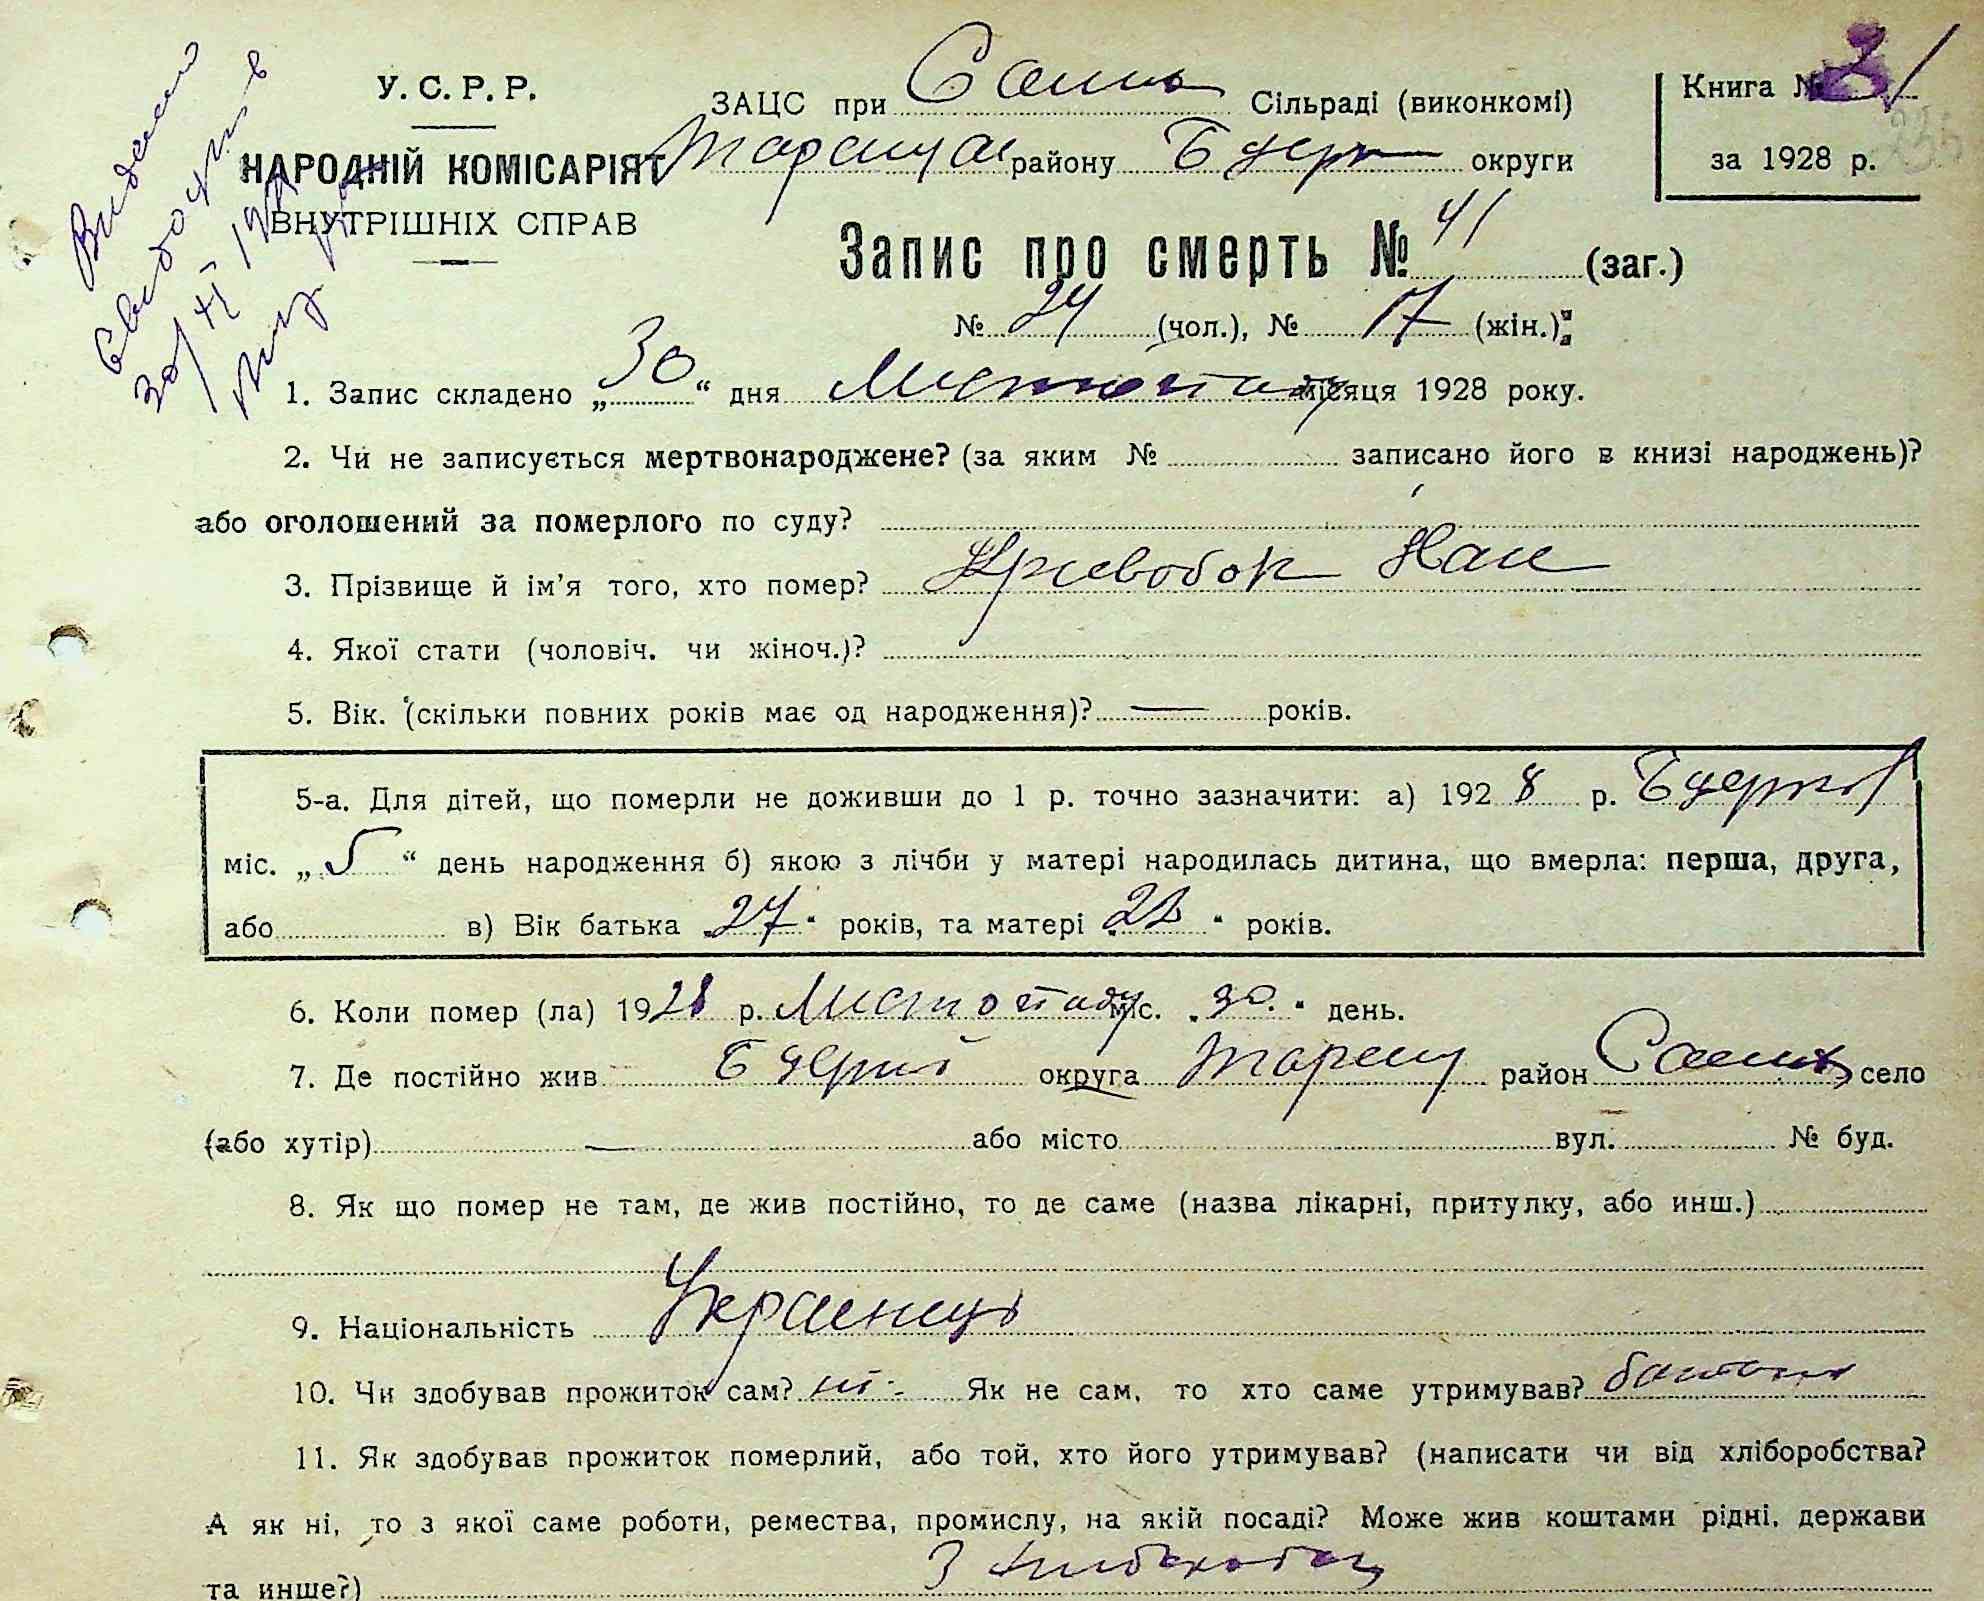 У. С. Р. Р.
НАРОДНІЙ КОМІСАРІЯТ
ВНУТРІШНІХ СПРАВ
Видано
30/XI
ЗАЦС при Сільраді (виконкомі)
району округи
Книга №
за 1928 р.
Запис про смерть № 41 (заг.)
№ 24 (чол.), № 17 (жін.)
1. Запис складено „30“ дня Листопаду місяця 1928 року.
2. Чи не записується мертвонароджене? (за яким № записано його в книзі народжень)?
або оголошений за померлого по суду?
3. Прізвище й ім’я того, хто помер? Кривобок
4. Якої стати (чоловіч. чи жіноч.)?
5. Вік. (скільки повних років має од народження)? — років.
5-а. Для дітей, що померли не доживши до 1 р. точно зазначити: а) 1928 р.
міс. „5“ день народження б) якою з лічби у матері народилась дитина, що вмерла: перша, друга,
або в) Вік батька „27“ років, та матері років.
6. Коли помер (ла) 1928 р. Листопаду міс. „30.“ день.
7. Де постійно жив округа район село
(або хутір) — або місто вул. № буд.
8. Як що помер не там, де жив постійно, то де саме (назва лікарні, притулку, або инш.)
9. Національність Украинець
10. Чи здобував прожиток сам? ні Як не сам, то хто саме утримував? батько
11. Як здобував прожиток померлий, або той, хто його утримував? (написати чи від хліборобства?
А як ні, то з якої саме роботи, ремества, промислу, на якій посаді? Може жив коштами рідні, держави
та инше?) З